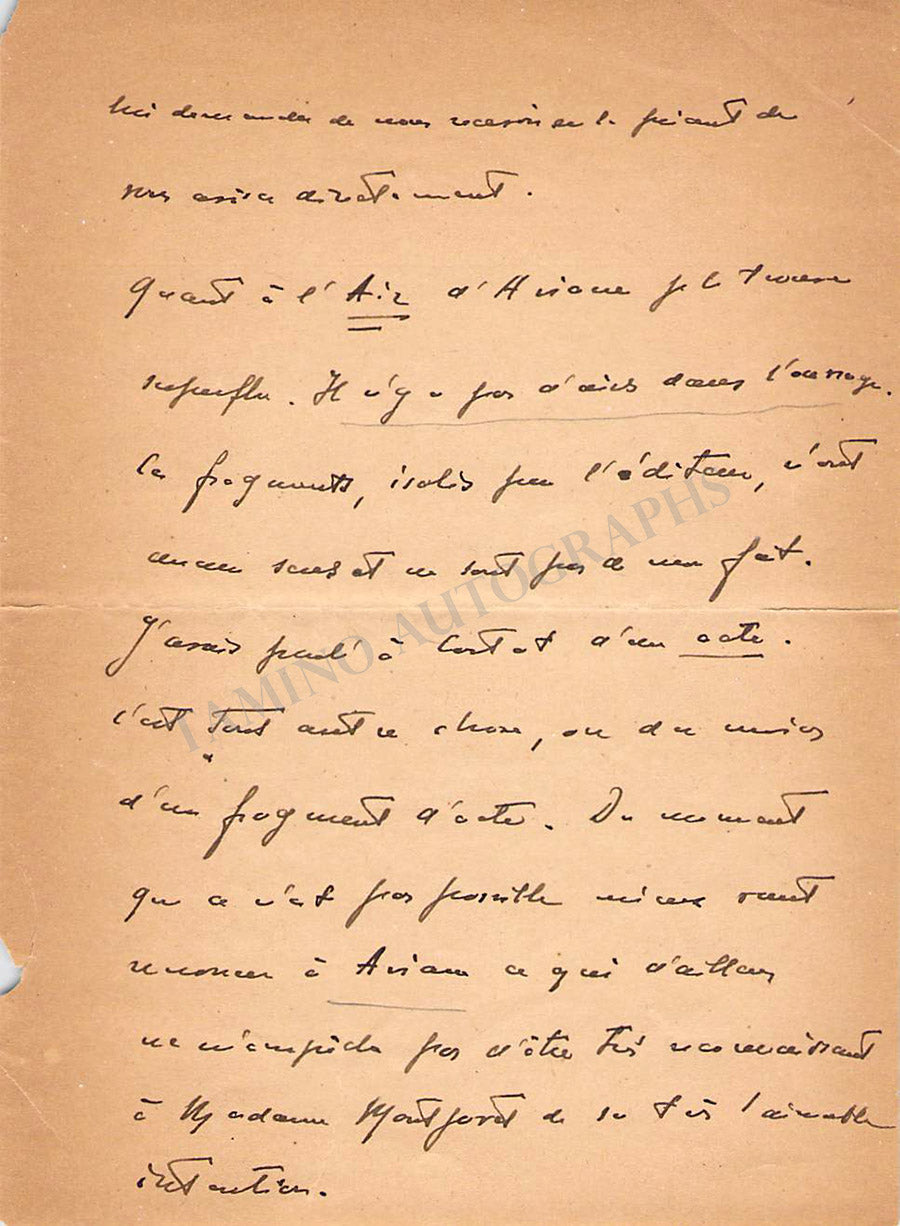 lui demander de nous recevoir en le priant de
vous aviser directement.
Quant à l'Air d'Ariane je le trouve
superflu. Il n'y a pas d'airs dans l'ouvrage.
Ces fragments, isolés par l'éditeur, n'ont
aucun sens et ne sont pas de mon fait.
J'avais parlé à Cortot d'un acte.
C'est tout autre chose, ou du moins
d'un fragment d'acte. Du moment
que ce n'est pas possible mieux vaut
renoncer à Ariane ce qui d'ailleurs
ne m'empêche pas d'être très reconnaissant
à Madame Montjovet de sa très aimable
intention.
TAMINO AUTOGRAPHS